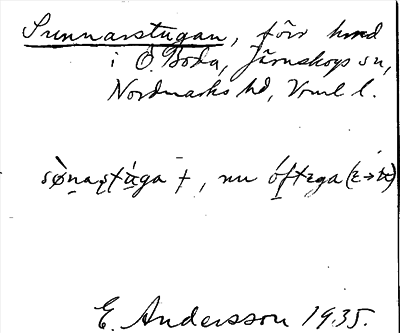 Sunnarstugan, förr hmd
i Ö. Boda, Järnskogs sn,
Nordmarks hd, Vrml l.
sø̀naştùga †, nu
E. Andersson 1935.